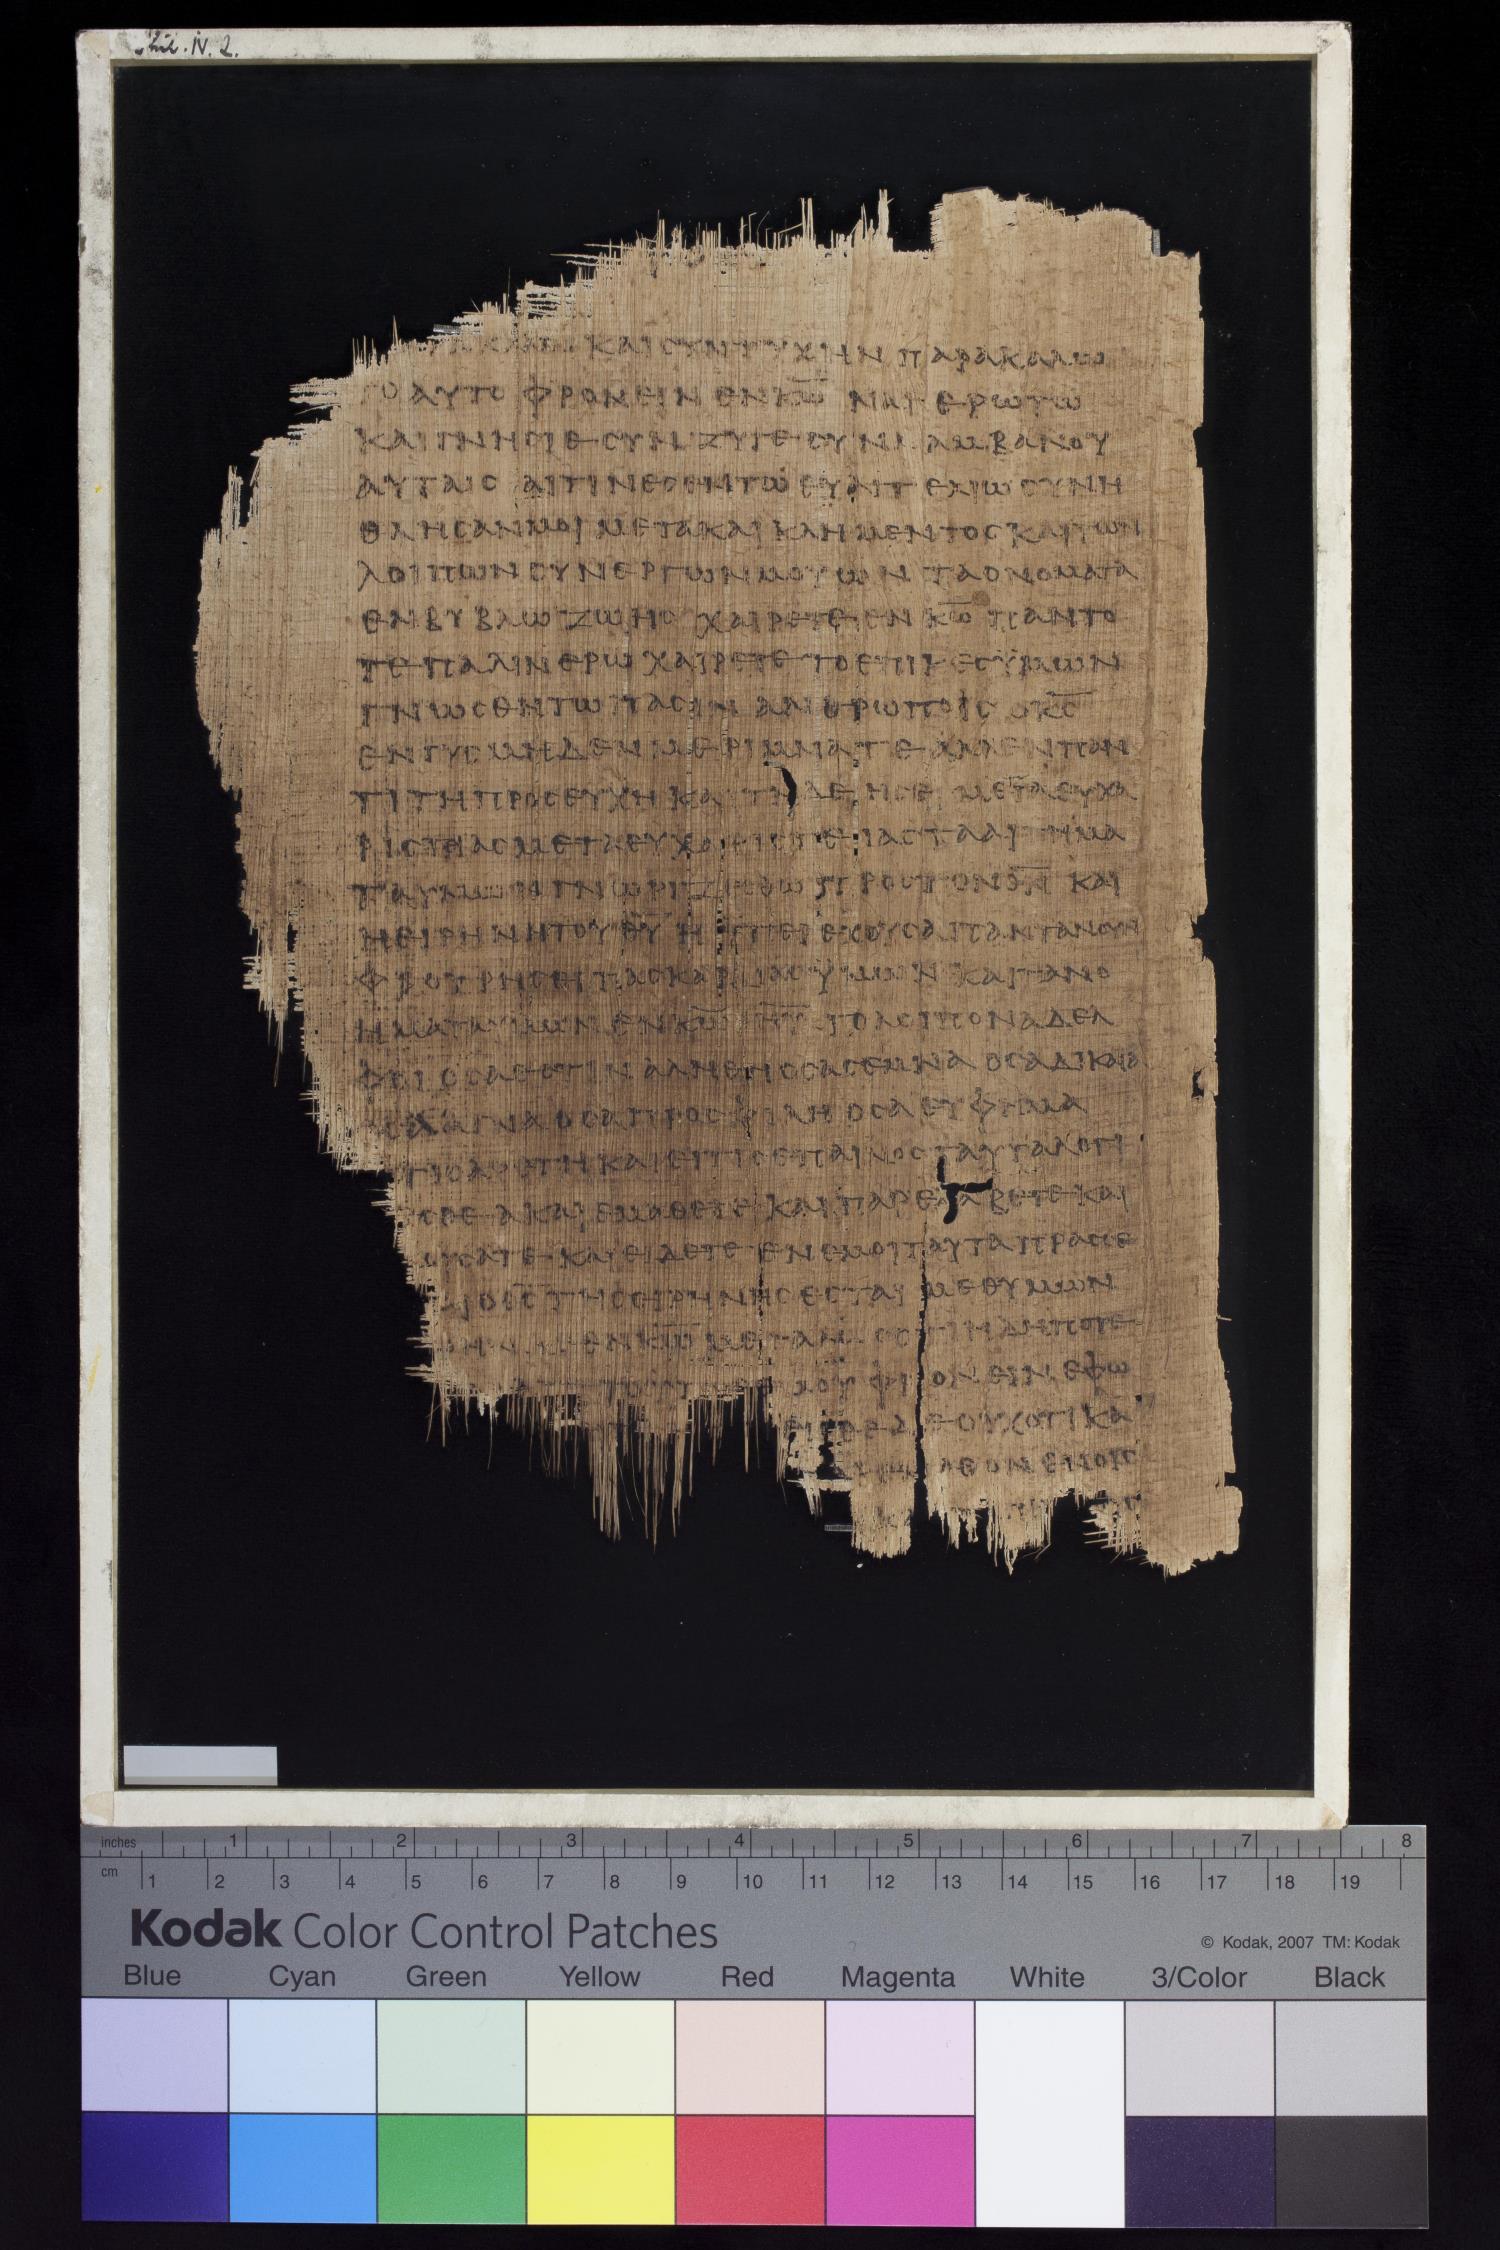 Phil. IV. 2.
ΚΑΙ ϹΥΝΤΥΧΗΝ ΠΑΡΑΚΑΛΩ
ΤΟ ΑΥΤΟ ΦΡΟΝΕΙΝ ΕΝ Κ̅Ω̅ ΝΑΙ ΕΡΩΤΩ
ΚΑΙ ΓΝΗϹΙΕ ϹΥΝΖΥΓΕ ϹΥΝΛΑΜΒΑΝΟΥ
ΑΥΤΑΙϹ ΑΙΤΙΝΕϹ ΕΝ ΤΩ ΕΥΑΓΓΕΛΙΩ ϹΥΝΗ
ΘΛΗϹΑΝ ΜΟΙ ΜΕΤΑ ΚΑΙ ΚΛΗΜΕΝΤΟϹ ΚΑΙ ΤΩΝ
ΛΟΙΠΩΝ ϹΥΝΕΡΓΩΝ ΜΟΥ ΩΝ ΤΑ ΟΝΟΜΑΤΑ
ΕΝ ΒΥΒΛΩ ΖΩΗϹ ΧΑΙΡΕΤΕ ΕΝ Κ̅Ω̅ ΠΑΝΤΟ
ΤΕ ΠΑΛΙΝ ΕΡΩ ΧΑΙΡΕΤΕ ΤΟ ΕΠΙΕΙΚΕϹ ΫΜΩΝ
ΓΝΩϹΘΗΤΩ ΠΑϹΙΝ ΑΝΘΡΩΠΟΙϹ Ο Κ̅Ϲ̅
ΕΝΓΥϹ ΜΗΔΕΝ ΜΕΡΙΜΝΑΤΕ ΑΛΛ ΕΝ ΠΑΝ
ΤΙ ΤΗ ΠΡΟϹΕΥΧΗ ΚΑΙ ΤΗ ΔΕΗϹΕΙ ΜΕΤΑ ΕΥΧΑ
ΡΙϹΤΕΙΑϹ ΜΕΤΑ ΕΥΧΑΡΙϹΤΕΙΑϹ ΤΑ ΑΙΤΗΜΑ
ΤΑ ΥΜΩΝ ΓΝΩΡΙΖΕϹΘΩ ΠΡΟϹ ΤΟΝ Θ̅Ν̅ ΚΑΙ
Η ΕΙΡΗΝΗ ΤΟΥ Θ̅Υ̅ Η ΥΠΕΡΕΧΟΥϹΑ ΠΑΝΤΑ ΝΟΥΝ
ΦΡΟΥΡΗϹΕΙ ΤΑϹ ΚΑΡΔΙΑϹ ΥΜΩΝ ΚΑΙ ΤΑ ΝΟ
ΗΜΑΤΑ ΥΜΩΝ ΕΝ ΤΟ ΛΟΙΠΟΝ ΑΔΕΛ
ΦΟΙ ΟϹΑ ΕϹΤΙΝ ΑΛΗΘΗ ΟϹΑ ϹΕΜΝΑ ΟϹΑ ΔΙΚΑΙΑ
ϹΑ ΑΓΝΑ ΟϹΑ ΠΡΟϹΦΙΛΗ ΟϹΑ ΕΥΦΗΜΑ
ΤΙϹ ΑΡΕΤΗ ΚΑΙ ΕΙ ΤΙϹ ΕΠΑΙΝΟϹ ΤΑΥΤΑ ΛΟΓΙ
ϹΘΕ Α ΚΑΙ ΕΜΑΘΕΤΕ ΚΑΙ ΠΑΡΕΛΑΒΕΤΕ ΚΑΙ
ΟΥϹΑΤΕ ΚΑΙ ΕΙΔΕΤΕ ΕΝ ΕΜΟΙ ΤΑΥΤΑ ΠΡΑϹϹΕ
ΚΑΙ Ο Θ̅Ϲ̅ ΤΗϹ ΕΙΡΗΝΗϹ ΕϹΤΑΙ ΜΕΘ ΥΜΩΝ
ΕΝ Κ̅Ω̅ ΜΕΓΑΛΩϹ ΟΤΙ ΗΔΗ ΠΟΤΕ
ΦΡΟΝΕΙΝ ΕΦ Ω
ΟΥΧ ΟΤΙ ΚΑ
ΕΜΑΘΟΝ ΕΝ ΟΙϹ
inches 1 2 3 4 5 6 7 8
cm 1 2 3 4 5 6 7 8 9 10 11 12 13 14 15 16 17 18 19
Kodak Color Control Patches
© Kodak, 2007 TM: Kodak
Blue Cyan Green Yellow Red Magenta White 3/Color Black